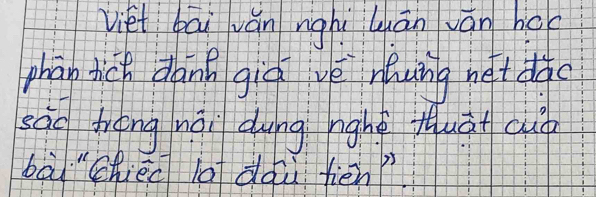 Viết bài văn nghị luận văn học
phân tích đánh giá về những nét đặc
sắc trong nội dung nghệ thuật của
bài "Chiếc lá đầu tiên".